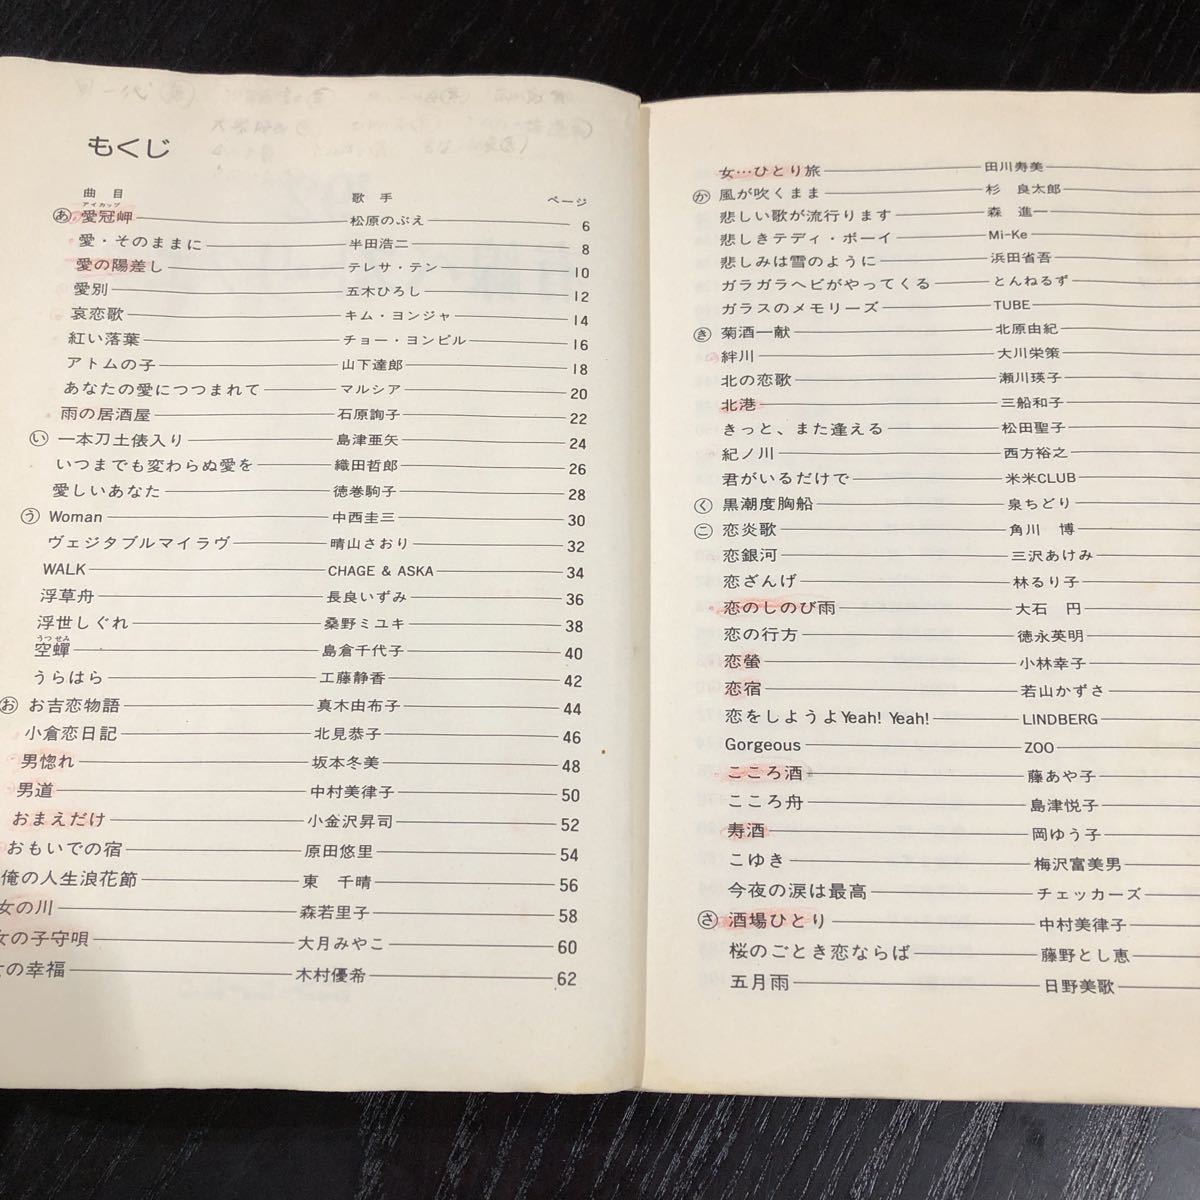 もくじ
曲目 歌手 ページ
アイカップ
あ 愛冠岬 松原のぶえ 6
愛・そのままに 半田浩二 8
愛の陽差し テレサ・テン 10
愛別 五木ひろし 12
哀恋歌 キム・ヨンジャ 14
紅い落葉 チョー・ヨンピル 16
アトムの子 山下達郎 18
あなたの愛につつまれて マルシア 20
雨の居酒屋 石原詢子 22
い 一本刀土俵入り 島津亜矢 24
いつまでも変わらぬ愛を 織田哲郎 26
愛しいあなた 徳巻駒子 28
う Woman 中西圭三 30
ヴェジタブルマイラヴ 晴山さおり 32
WALK CHAGE & ASKA 34
浮草舟 長良いずみ 36
浮世しぐれ 桑野ミユキ 38
うつせみ
空蟬 島倉千代子 40
うらはら 工藤静香 42
お お吉恋物語 真木由布子 44
小倉恋日記 北見恭子 46
男惚れ 坂本冬美 48
男道 中村美律子 50
おまえだけ 小金沢昇司 52
おもいでの宿 原田悠里 54
俺の人生浪花節 東 千晴 56
女の川 森若里子 58
女の子守唄 大月みやこ 60
女の幸福 木村優希 62
女…ひとり旅 田川寿美
か 風が吹くまま 杉 良太郎
悲しい歌が流行ります 森 進一
悲しきテディ・ボーイ Mi-Ke
悲しみは雪のように 浜田省吾
ガラガラヘビがやってくる とんねるず
ガラスのメモリーズ TUBE
き 菊酒一献 北原由紀
絆川 大川栄策
北の恋歌 瀬川瑛子
北港 三船和子
きっと、また逢える 松田聖子
紀ノ川 西方裕之
君がいるだけで 米米CLUB
く 黒潮度胸船 泉ちどり
こ 恋炎歌 角川 博
恋銀河 三沢あけみ
恋ざんげ 林るり子
恋のしのび雨 大石 円
恋の行方 徳永英明
恋螢 小林幸子
恋宿 若山かずさ
恋をしようよYeah! Yeah! LINDBERG
Gorgeous ZOO
こころ酒 藤あや子
こころ舟 島津悦子
寿酒 岡ゆう子
こゆき 梅沢富美男
今夜の涙は最高 チェッカーズ
さ 酒場ひとり 中村美律子
桜のごとき恋ならば 藤野とし恵
五月雨 日野美歌